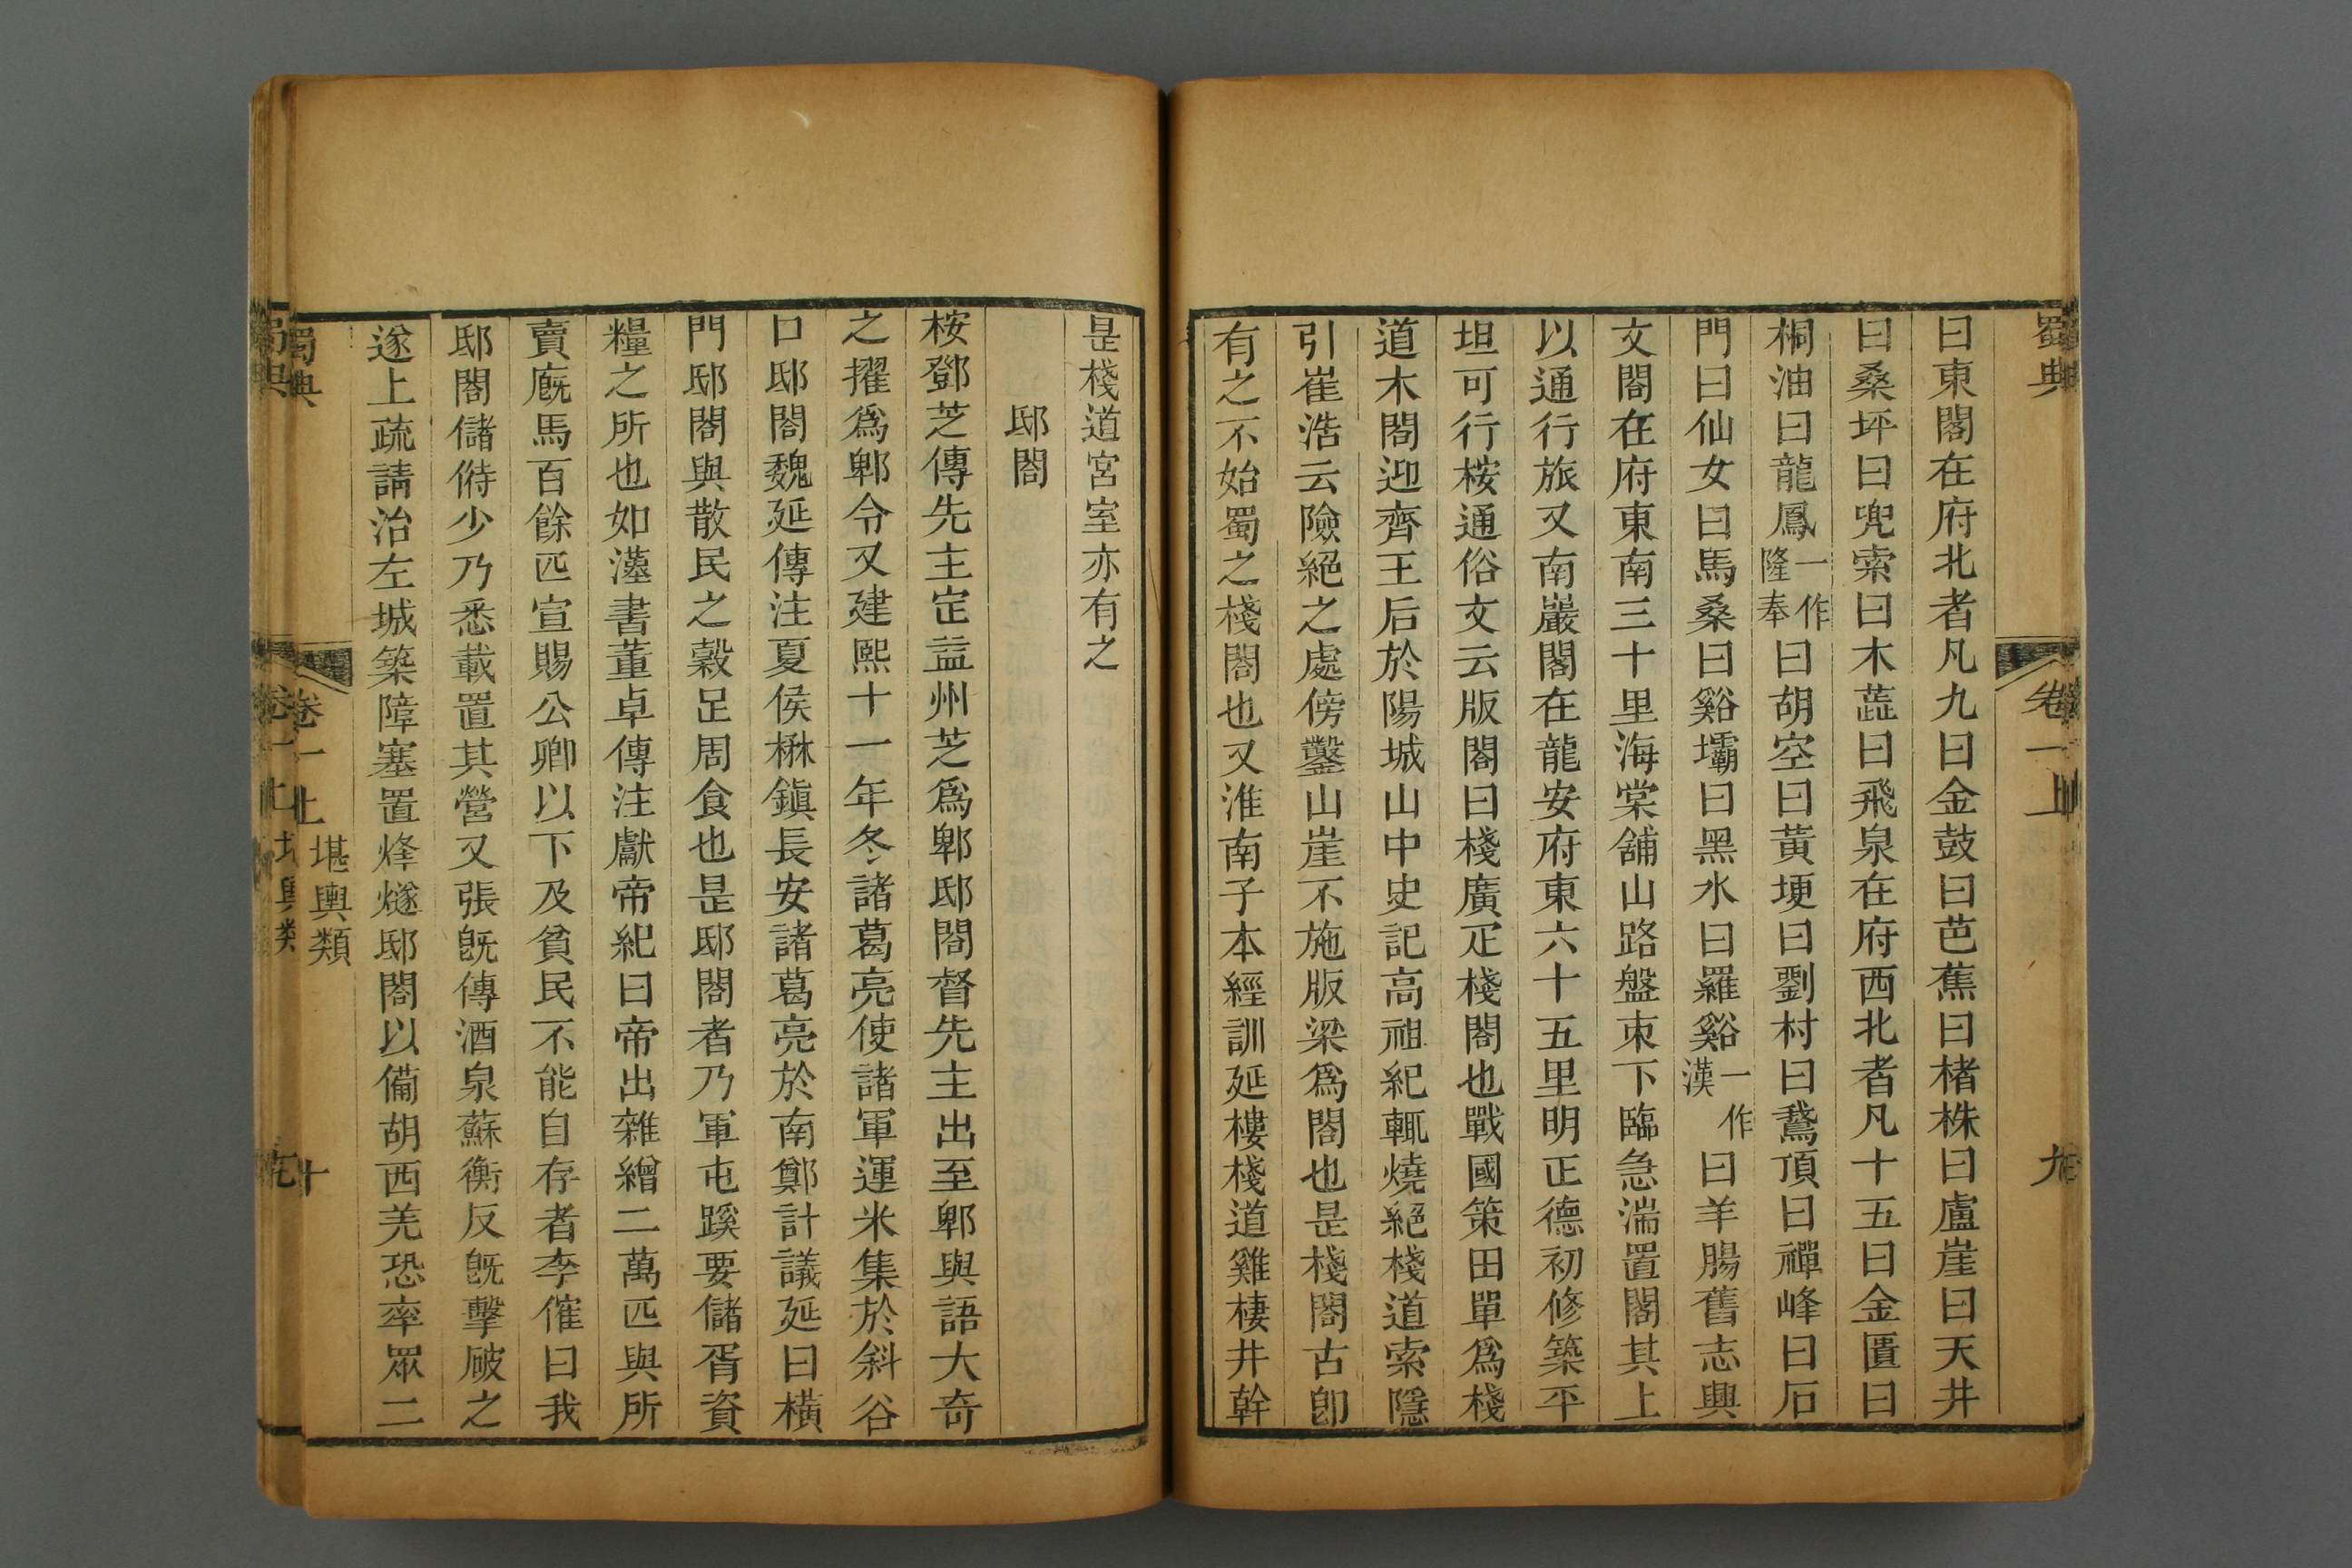 蜀典
卷一上
九
曰東閣在府北者凡九曰金鼓曰芭蕉曰楮株曰盧崖曰天井
曰桑坪曰兜索曰木蓏曰飛泉在府西北者凡十五曰金匱曰
桐油曰龍鳳一作隆奉曰胡空曰黃埂曰劉村曰鵞頂曰禪峰曰石
門曰仙女曰馬桑曰谿壩曰黑水曰羅谿一作漢曰羊腸舊志興
文閣在府東南三十里海棠舖山路盤束下臨急湍置閣其上
以通行旅又南巖閣在龍安府東六十五里明正德初修築平
坦可行桉通俗文云版閣曰棧廣疋棧閣也戰國策田單爲棧
道木閣迎齊王后於陽城山中史記高祖紀輒燒絕棧道索隱
引崔浩云險絕之處傍鑿山崖不施版梁爲閣也是棧閣古卽
有之不始蜀之棧閣也又淮南子本經訓延樓棧道雞棲井幹
是棧道宮室亦有之
邸閣
桉鄧芝傳先主定益州芝爲郫邸閣督先主出至郫與語大奇
之擢爲郫令又建熙十一年冬諸葛亮使諸軍運米集於斜谷
口邸閣魏延傳注夏侯楙鎭長安諸葛亮於南鄭計議延曰橫
門邸閣與散民之穀足周食也是邸閣者乃軍屯蹊要儲胥資
糧之所也如漢書董卓傳注獻帝紀曰帝出雜繒二萬匹與所
賣廐馬百餘匹宣賜公卿以下及貧民不能自存者李傕曰我
邸閣儲偫少乃悉載置其營又張旣傳酒泉蘇衡反旣擊破之
遂上疏請治左城築障塞置烽燧邸閣以備胡西羌恐率眾二
蜀典
卷一上
堪輿類
十